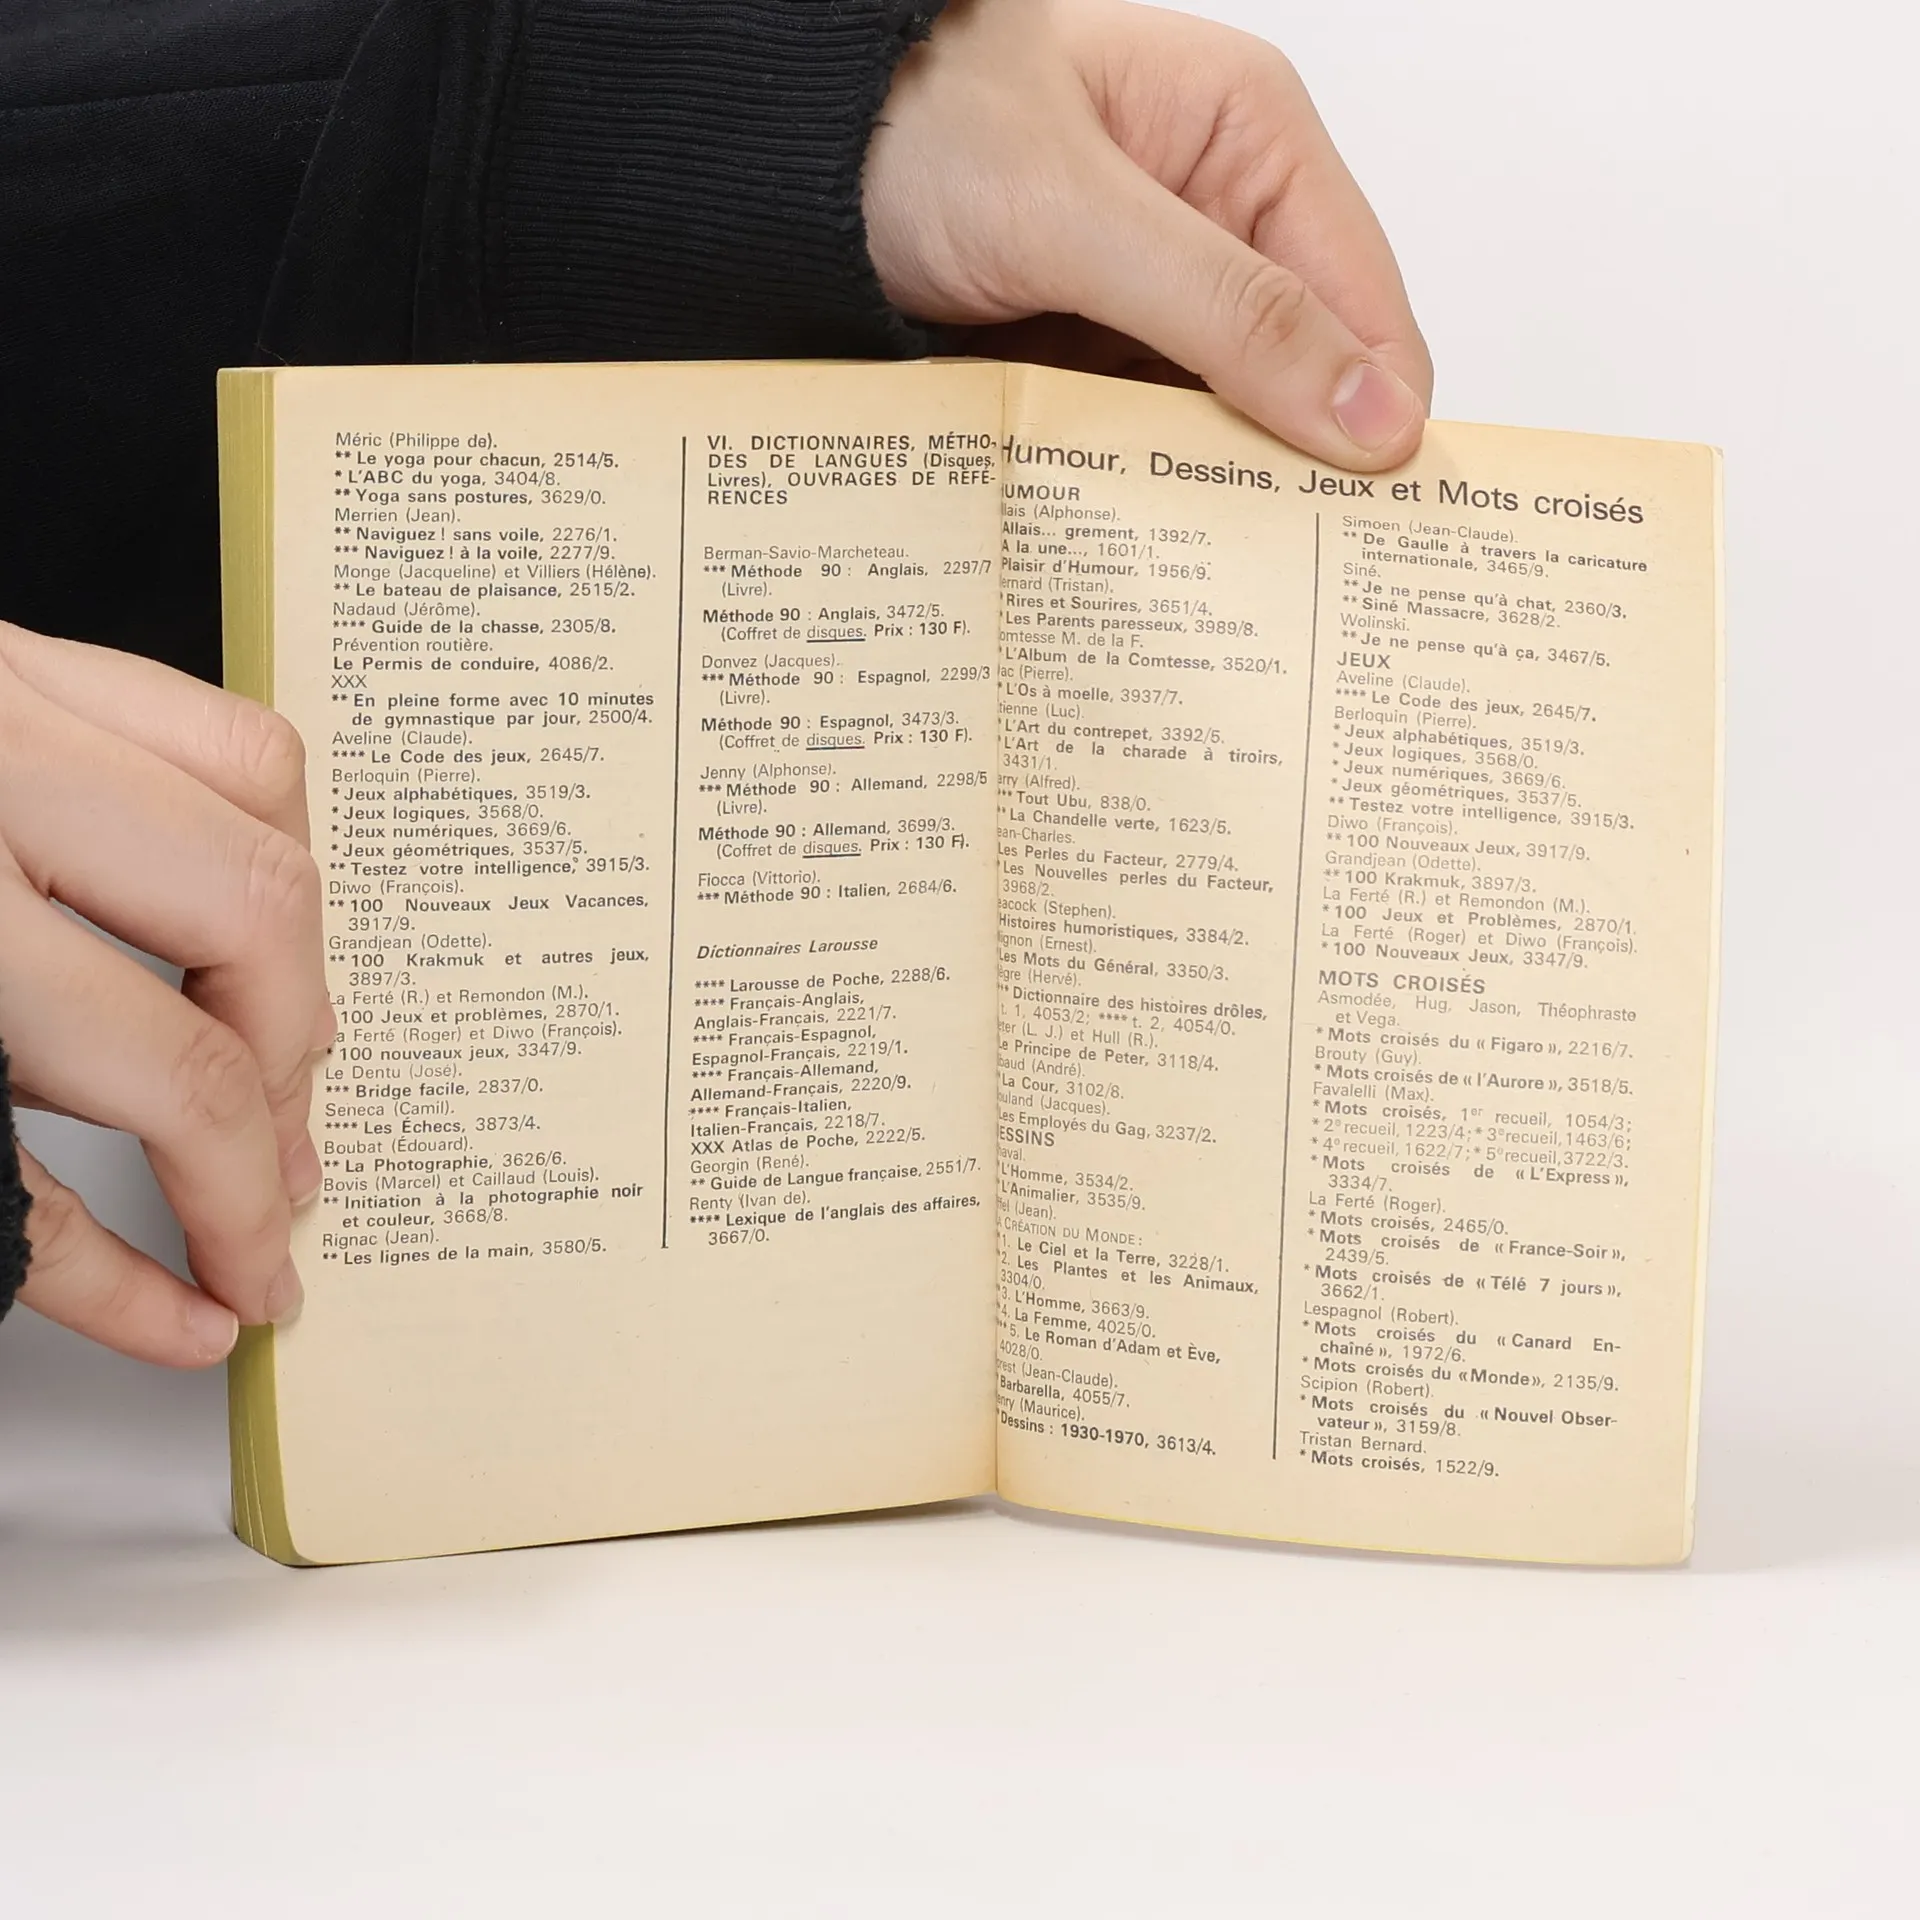 Méric (Philippe de).
** Le yoga pour chacun, 2514/5.
* L'ABC du yoga, 3404/8.
** Yoga sans postures, 3629/0.
Merrien (Jean).
** Naviguez ! sans voile, 2276/1.
*** Naviguez ! à la voile, 2277/9.
Monge (Jacqueline) et Villiers (Hélène).
** Le bateau de plaisance, 2515/2.
Nadaud (Jérôme).
**** Guide de la chasse, 2305/8.
Prévention routière.
Le Permis de conduire, 4086/2.
XXX
** En pleine forme avec 10 minutes
de gymnastique par jour, 2500/4.
Aveline (Claude).
**** Le Code des jeux, 2645/7.
Berloquin (Pierre).
* Jeux alphabétiques, 3519/3.
* Jeux logiques, 3568/0.
* Jeux numériques, 3669/6.
* Jeux géométriques, 3537/5.
** Testez votre intelligence, 3915/3.
Diwo (François).
** 100 Nouveaux Jeux Vacances,
3917/9.
Grandjean (Odette).
** 100 Krakmuk et autres jeux,
3897/3.
La Ferté (R.) et Remondon (M.).
100 Jeux et problèmes, 2870/1.
La Ferté (Roger) et Diwo (François).
* 100 nouveaux jeux, 3347/9.
Le Dentu (José).
*** Bridge facile, 2837/0.
Seneca (Camil).
**** Les Échecs, 3873/4.
Boubat (Édouard).
** La Photographie, 3626/6.
Bovis (Marcel) et Caillaud (Louis).
** Initiation à la photographie noir
et couleur, 3668/8.
Rignac (Jean).
** Les lignes de la main, 3580/5.
VI. DICTIONNAIRES, MÉTHO-
DES DE LANGUES (Disques,
Livres), OUVRAGES DE RÉFÉ-
RENCES
Berman-Savio-Marcheteau.
*** Méthode 90 : Anglais, 2297/7
(Livre).
Méthode 90 : Anglais, 3472/5.
(Coffret de disques. Prix : 130 F).
Donvez (Jacques).
*** Méthode 90 : Espagnol, 2299/3
(Livre).
Méthode 90 : Espagnol, 3473/3.
(Coffret de disques. Prix : 130 F).
Jenny (Alphonse).
*** Méthode 90 : Allemand, 2298/5
(Livre).
Méthode 90 : Allemand, 3699/3.
(Coffret de disques. Prix : 130 F).
Fiocca (Vittorio).
*** Méthode 90 : Italien, 2684/6.
Dictionnaires Larousse
**** Larousse de Poche, 2288/6.
**** Français-Anglais,
Anglais-Français, 2221/7.
**** Français-Espagnol,
Espagnol-Français, 2219/1.
**** Français-Allemand,
Allemand-Français, 2220/9.
**** Français-Italien,
Italien-Français, 2218/7.
XXX Atlas de Poche, 2222/5.
Georgin (René).
** Guide de Langue française, 2551/7.
Renty (Ivan de).
**** Lexique de l'anglais des affaires,
3667/0.
Humour, Dessins, Jeux et Mots croisés
UMOUR
llais (Alphonse).
Allais... grement, 1392/7.
A la une..., 1601/1.
Plaisir d'Humour, 1956/9.
ernard (Tristan).
* Rires et Sourires, 3651/4.
* Les Parents paresseux, 3989/8.
omtesse M. de la F.
* L'Album de la Comtesse, 3520/1.
ac (Pierre).
* L'Os à moelle, 3937/7.
tienne (Luc).
* L'Art du contrepet, 3392/5.
* L'Art de la charade à tiroirs,
3431/1.
arry (Alfred).
*** Tout Ubu, 838/0.
** La Chandelle verte, 1623/5.
ean-Charles.
Les Perles du Facteur, 2779/4.
* Les Nouvelles perles du Facteur,
3968/2.
eacock (Stephen).
Histoires humoristiques, 3384/2.
ignon (Ernest).
Les Mots du Général, 3350/3.
ègre (Hervé).
*** Dictionnaire des histoires drôles,
t. 1, 4053/2; **** t. 2, 4054/0.
eter (L. J.) et Hull (R.).
Le Principe de Peter, 3118/4.
ibaud (André).
* La Cour, 3102/8.
ouland (Jacques).
* Les Employés du Gag, 3237/2.
ESSINS
haval.
* L'Homme, 3534/2.
* L'Animalier, 3535/9.
ffel (Jean).
A CRÉATION DU MONDE :
* 1. Le Ciel et la Terre, 3228/1.
* 2. Les Plantes et les Animaux,
3304/0.
* 3. L'Homme, 3663/9.
* 4. La Femme, 4025/0.
*** 5. Le Roman d'Adam et Ève,
4028/0.
orest (Jean-Claude).
* Barbarella, 4055/7.
enry (Maurice).
* Dessins : 1930-1970, 3613/4.
Simoen (Jean-Claude).
** De Gaulle à travers la caricature
internationale, 3465/9.
Siné.
** Je ne pense qu'à chat, 2360/3.
** Siné Massacre, 3628/2.
Wolinski.
** Je ne pense qu'à ça, 3467/5.
JEUX
Aveline (Claude).
**** Le Code des jeux, 2645/7.
Berloquin (Pierre).
* Jeux alphabétiques, 3519/3.
* Jeux logiques, 3568/0.
* Jeux numériques, 3669/6.
* Jeux géométriques, 3537/5.
** Testez votre intelligence, 3915/3.
Diwo (François).
** 100 Nouveaux Jeux, 3917/9.
Grandjean (Odette).
** 100 Krakmuk, 3897/3.
La Ferté (R.) et Remondon (M.).
* 100 Jeux et Problèmes, 2870/1.
La Ferté (Roger) et Diwo (François).
* 100 Nouveaux Jeux, 3347/9.
MOTS CROISÉS
Asmodée, Hug, Jason, Théophraste
et Vega.
* Mots croisés du « Figaro », 2216/7.
Brouty (Guy).
* Mots croisés de « l'Aurore », 3518/5.
Favalelli (Max).
* Mots croisés, 1er recueil, 1054/3;
* 2e recueil, 1223/4; * 3e recueil, 1463/6;
* 4e recueil, 1622/7; * 5e recueil, 3722/3.
* Mots croisés de « L'Express »,
3334/7.
La Ferté (Roger).
* Mots croisés, 2465/0.
* Mots croisés de « France-Soir »,
2439/5.
* Mots croisés de « Télé 7 jours »,
3662/1.
Lespagnol (Robert).
* Mots croisés du « Canard En-
chaîné », 1972/6.
* Mots croisés du « Monde », 2135/9.
Scipion (Robert).
* Mots croisés du « Nouvel Obser-
vateur », 3159/8.
Tristan Bernard.
* Mots croisés, 1522/9.